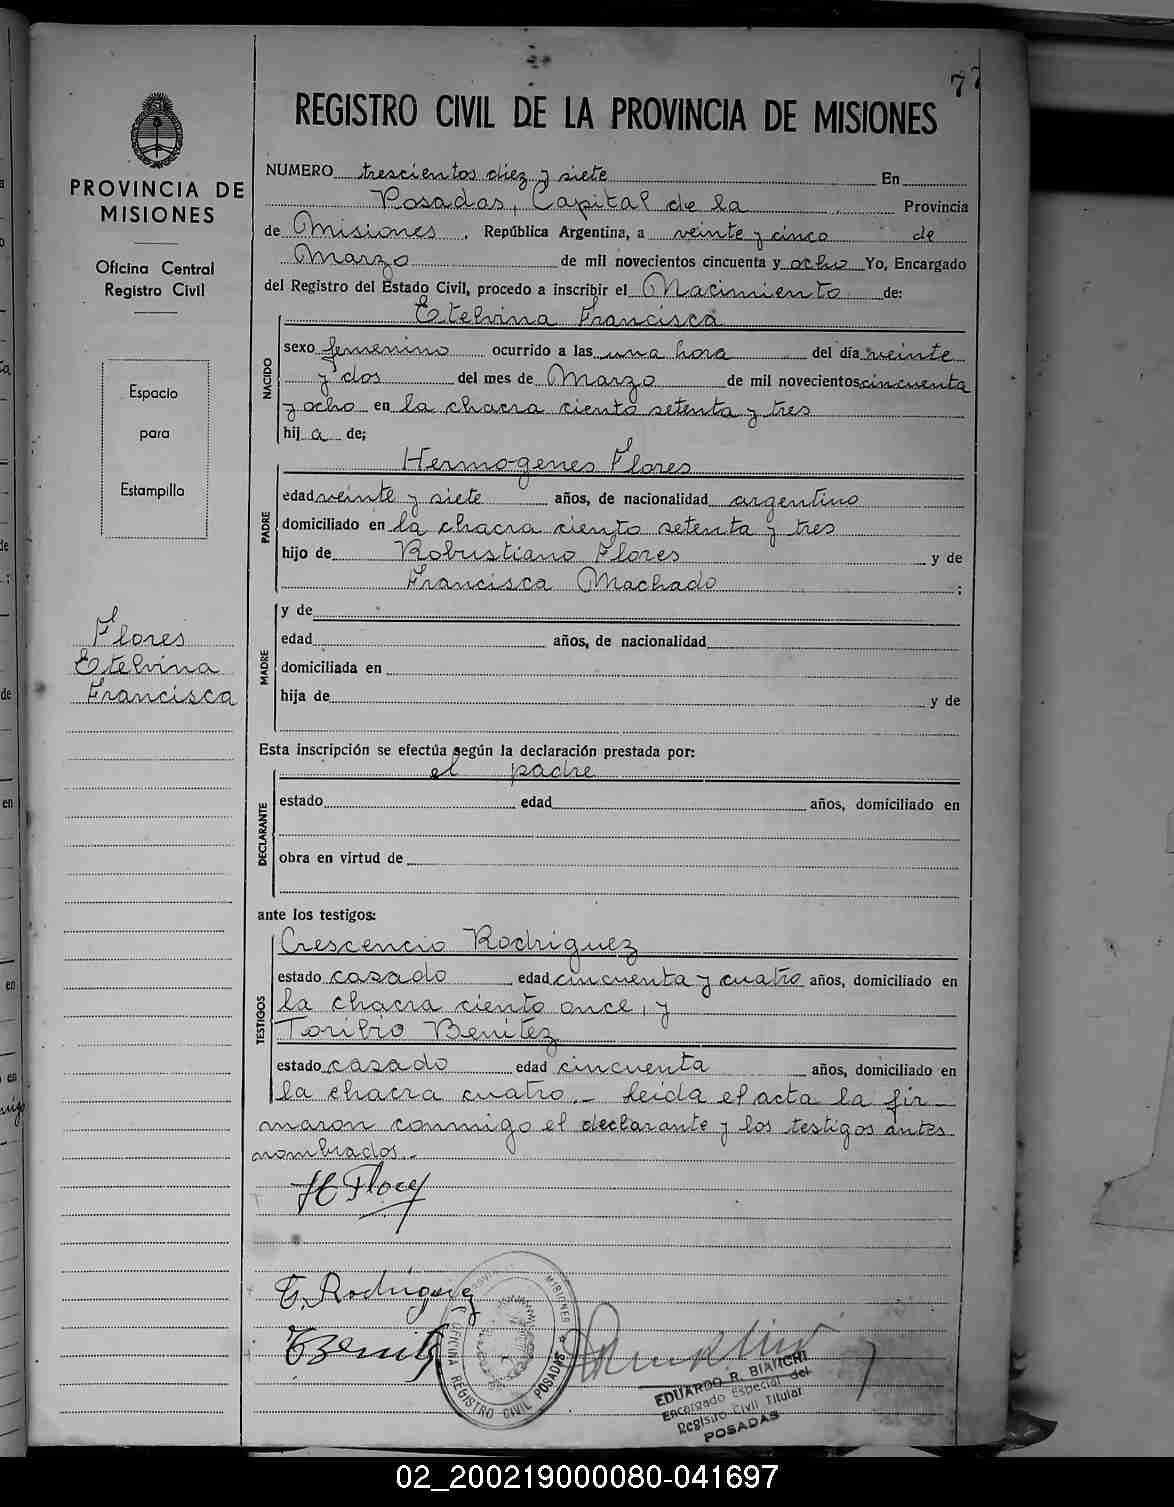 77
REGISTRO CIVIL DE LA PROVINCIA DE MISIONES
PROVINCIA DE
MISIONES
Oficina Central
Registro Civil
Espacio
para
Estampilla
Flores
Etelvina
Francisca
NUMERO trescientos diez y siete En
Posadas, Capital de la Provincia
de Misiones, República Argentina, a veinte y cinco de
Marzo de mil novecientos cincuenta y ocho Yo, Encargado
del Registro del Estado Civil, procedo a inscribir el Nacimiento de:
NACIDO
Etelvina Francisca
sexo femenino ocurrido a las una hora del día veinte
y dos del mes de Marzo de mil novecientos cincuenta
y ocho en la chacra ciento setenta y tres
hij a de;
PADRE
Hermogenes Flores
edad veinte y siete años, de nacionalidad argentino
domiciliado en la chacra ciento setenta y tres
hijo de Robustiano Flores y de
Francisca Machado ;
MADRE
y de
edad años, de nacionalidad
domiciliada en
hija de y de
Esta inscripción se efectúa según la declaración prestada por:
el padre
DECLARANTE
estado edad años, domiciliado en
obra en virtud de
ante los testigos:
TESTIGOS
Crescencio Rodriguez
estado casado edad cincuenta y cuatro años, domiciliado en
la chacra ciento once, y
Toribio Benitez
estado casado edad cincuenta años, domiciliado en
la chacra cuatro.- Leida el acta la fir-
maron conmigo el declarante y los testigos antes
nombrados.-
H Flores
C. Rodriguez
T Benitez
OFICINA REGISTRO CIVIL POSADAS
MISIONES
EDUARDO R. BIANCHI
Encargado Especial del
Registro Civil Titular
POSADAS
02_200219000080-041697